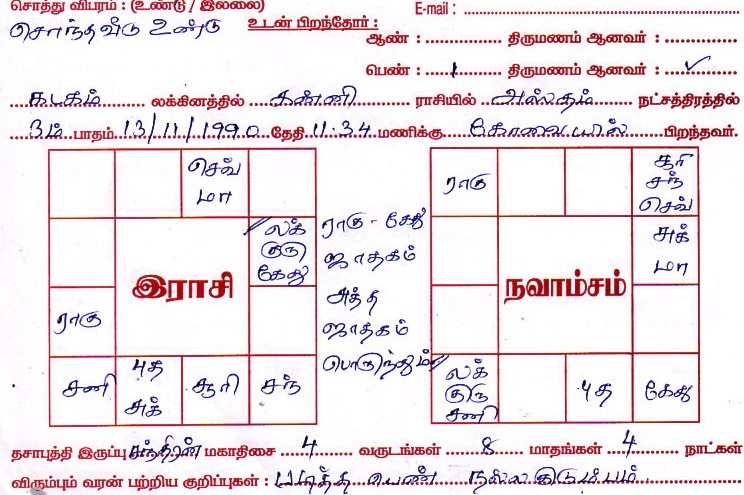 சொத்து விபரம் : (உண்டு / இல்லை) E-mail :
சொந்தவீடு உண்டு உடன் பிறந்தோர் :
ஆண் : திருமணம் ஆனவர் :
பெண் : 1 திருமணம் ஆனவர் : ✓
கடகம் லக்கினத்தில் கன்னி ராசியில் அஸ்தம் நட்சத்திரத்தில்
3ம் பாதம் 13/11/1990 தேதி 11.34 மணிக்கு கோவையில் பிறந்தவர்.
செவ்
மா
லக்
குரு
கேது
ராகு
சனி
புத
சுக்
சூரி
சந்
இராசி
ராகு - கேது
ஜாதகம்
அத்த
ஜாதகம்
பொருந்தும்
ராகு
சூரி
சந்
செவ்
சுக்
மா
நவாம்சம்
லக்
குரு
சனி
புத
கேது
தசாபுத்தி இருப்பு சந்திரன் மகாதிசை 4 வருடங்கள் 8 மாதங்கள் 4 நாட்கள்
விரும்பும் வரன் பற்றிய குறிப்புகள் : படித்த பெண் நல்ல குடும்பம்